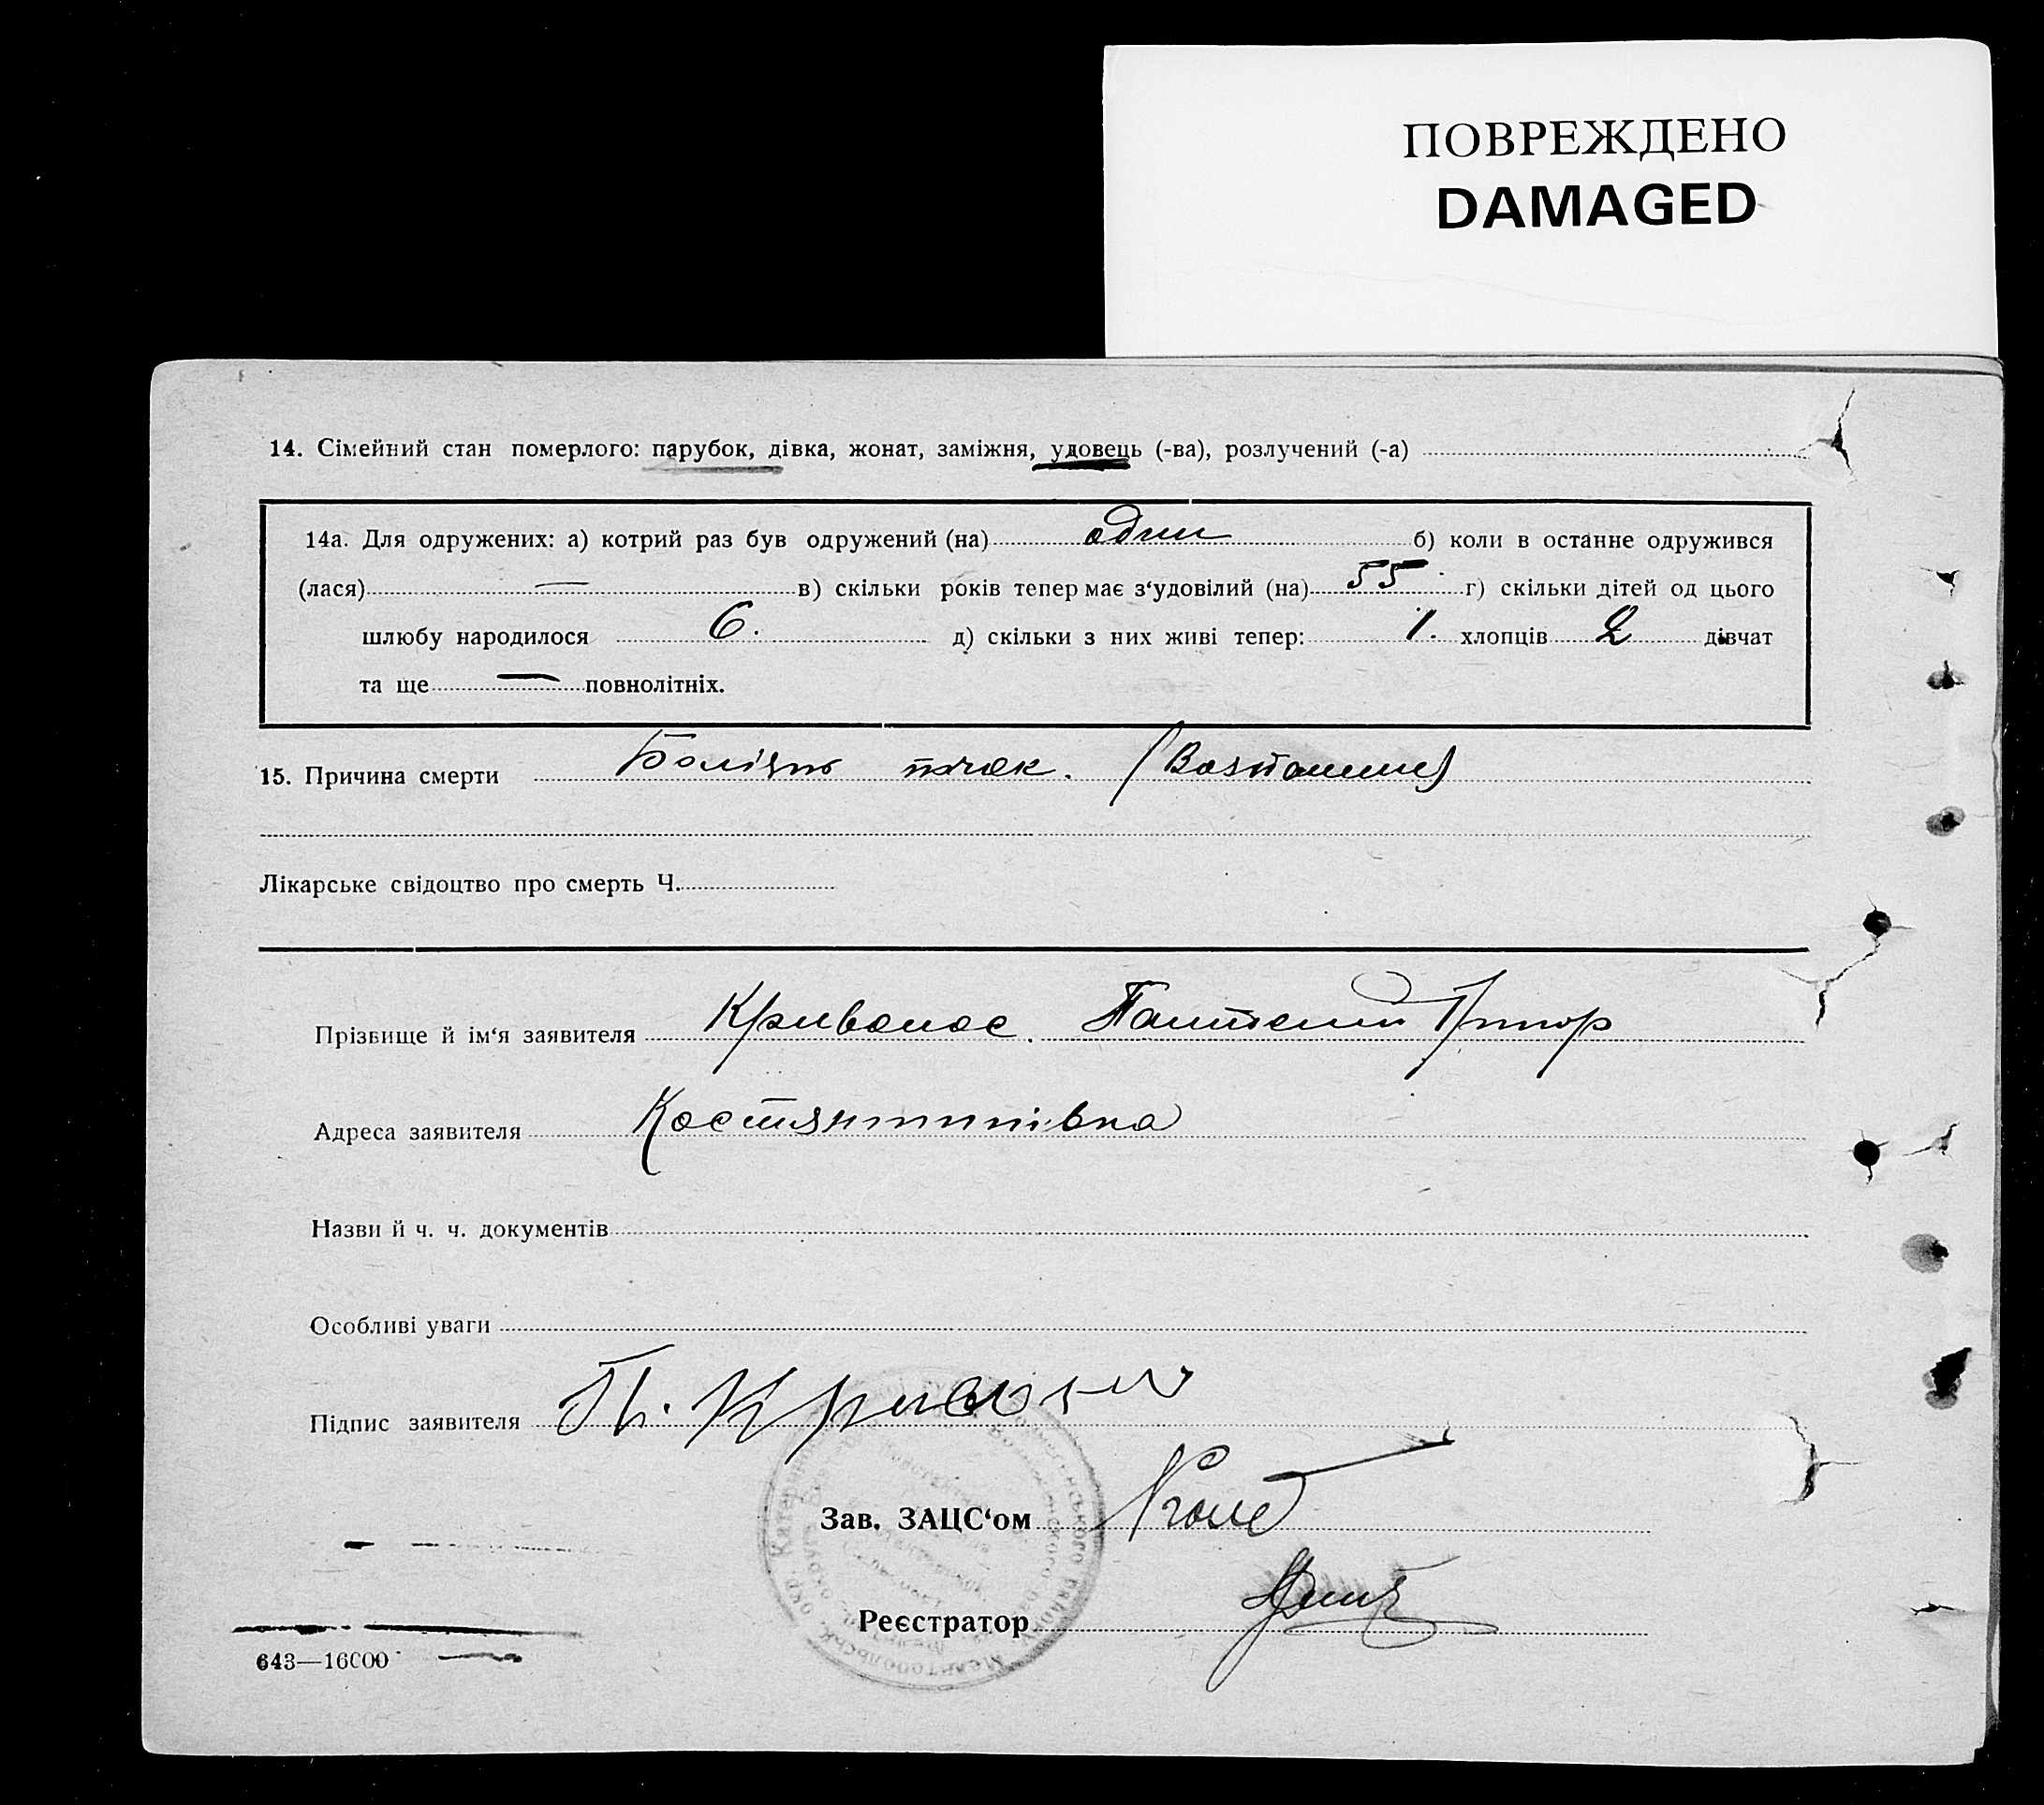 ПОВРЕЖДЕНО
DAMAGED
14. Сімейний стан померлого: парубок, дівка, жонат, заміжня, удовець (-ва), розлучений (-а)
14а. Для одружених: а) котрий раз був одружений (на) один б) коли в останне одружився
(лася) — в) скільки років тепер має з‘удовілий (на) 55 г) скільки дітей од цього
шлюбу народилося 6. д) скільки з них живі тепер: 1. хлопців 2 дівчат
та ще — повнолітніх.
15. Причина смерти Болізнь почок.
Лікарське свідоцтво про смерть Ч.
Прізвище й ім‘я заявителя Кривонос.
Адреса заявителя Костянтинівка
Назви й ч. ч. документів
Особливі уваги
Підпис заявителя
Зав. ЗАЦС‘ом
Реєстратор
643—16000